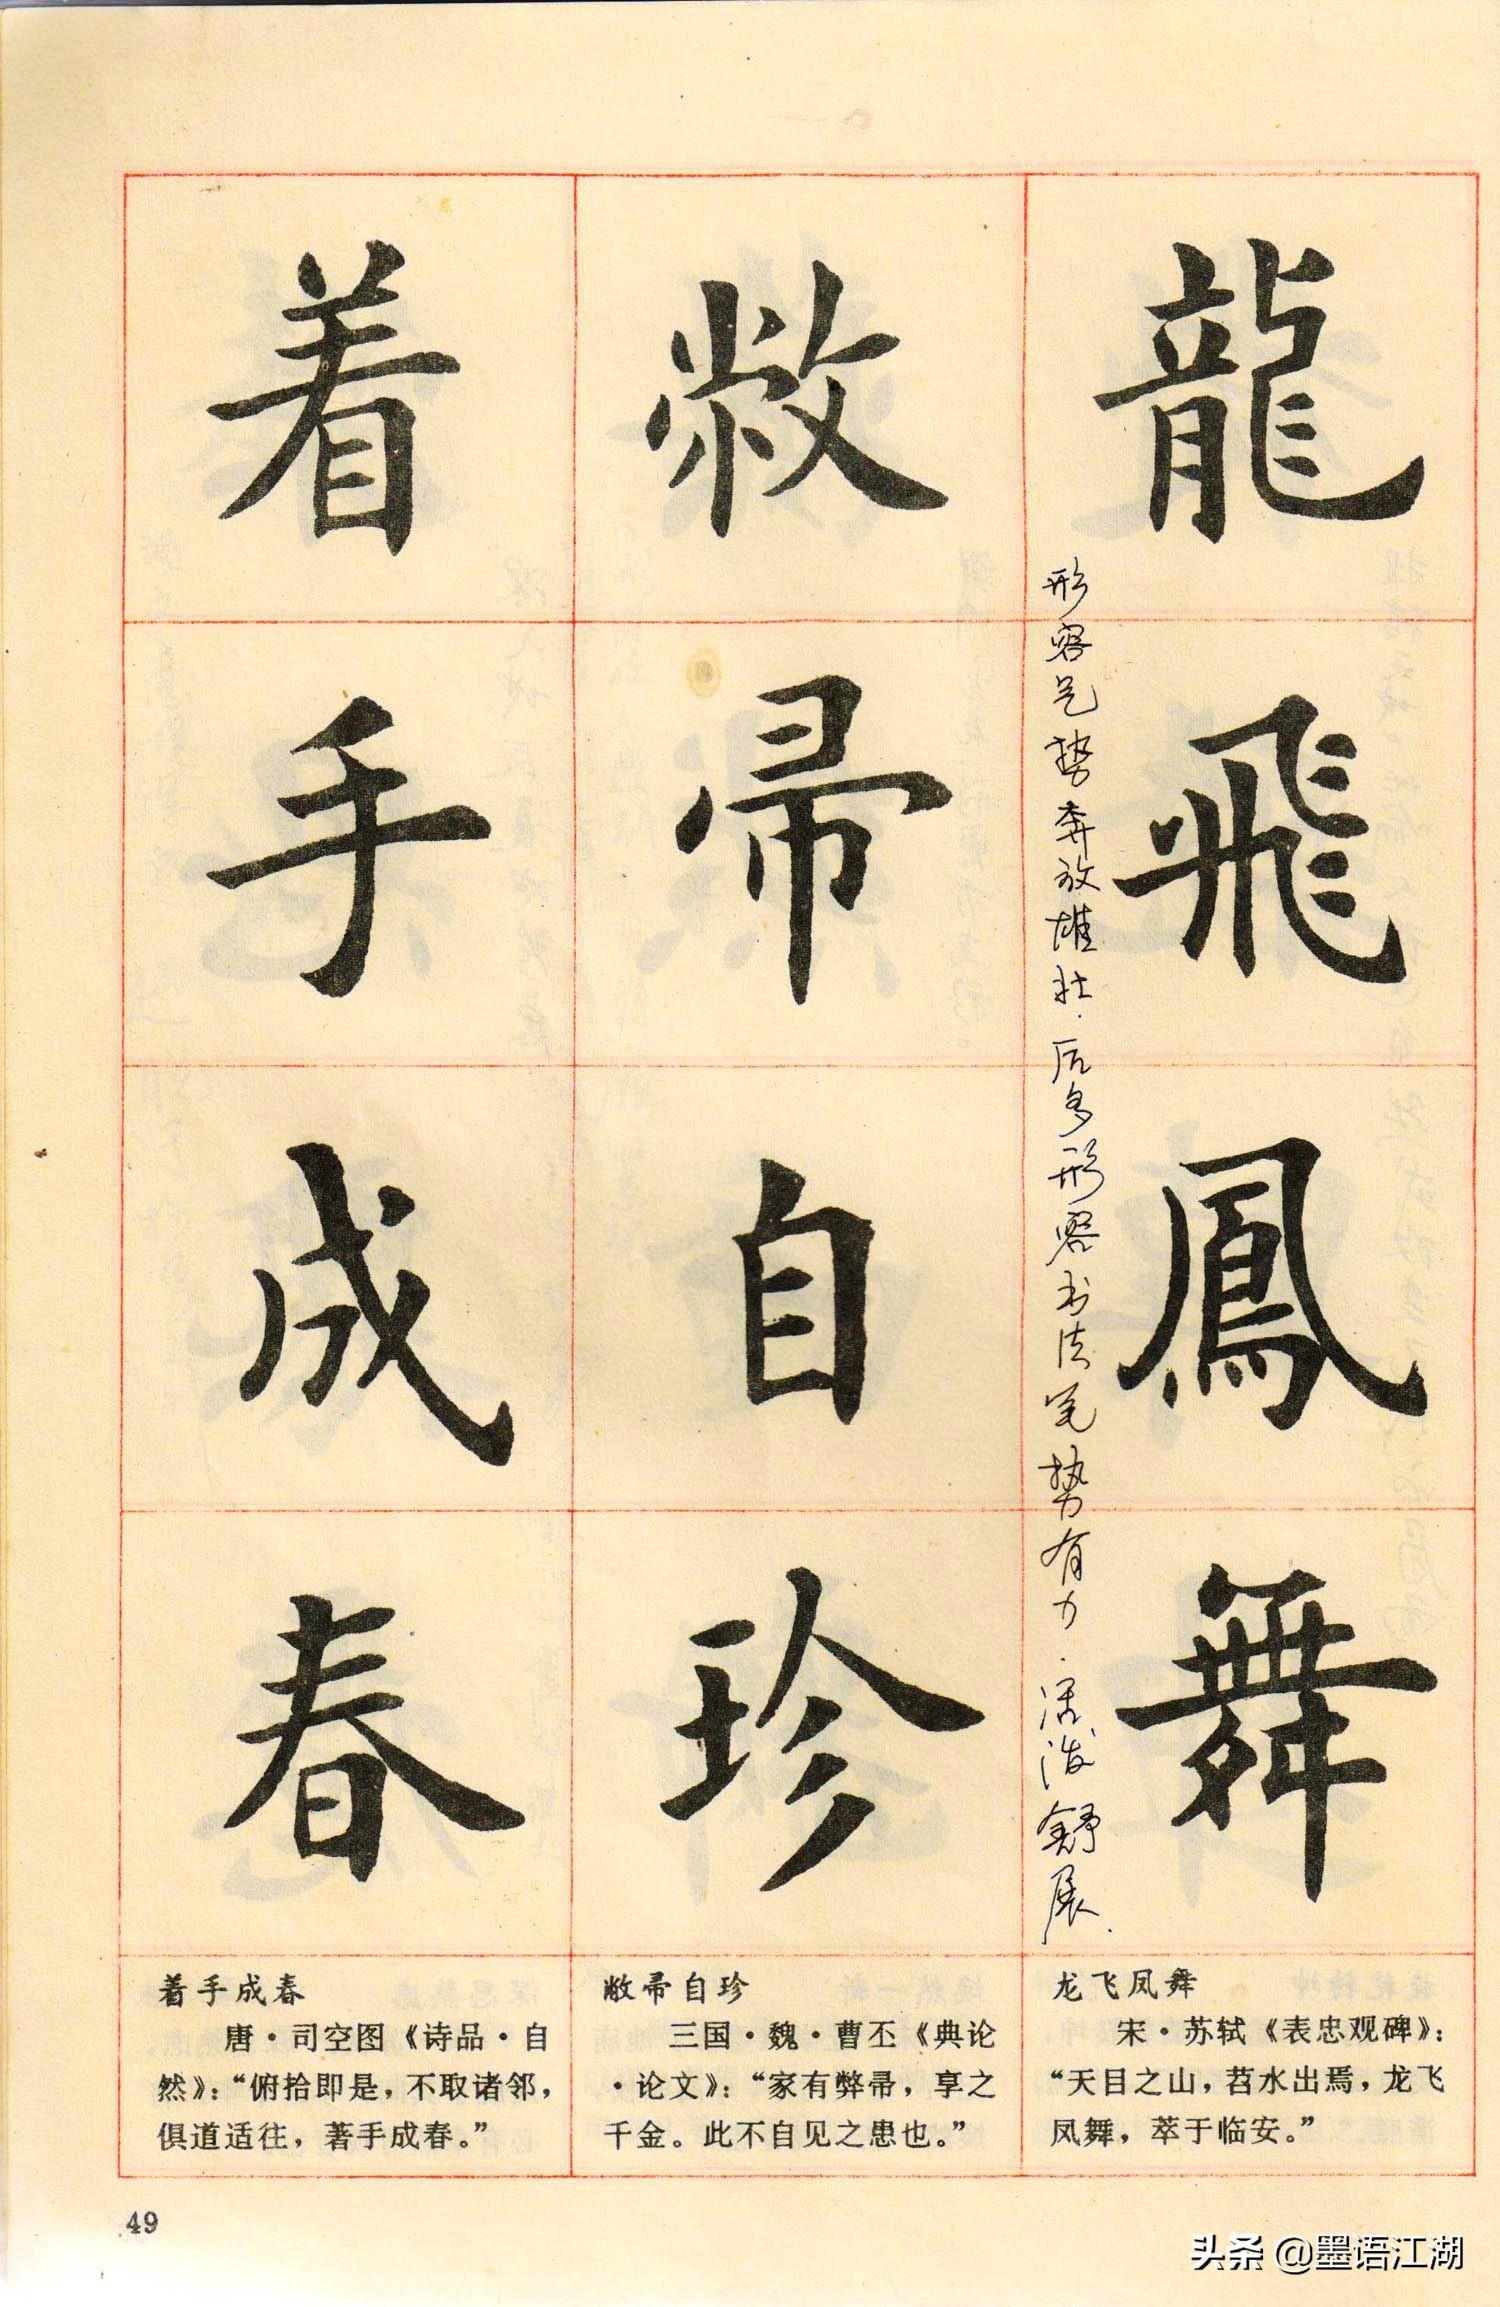 龍飛鳳舞
形容气势奔放雄壮.后多形容书法笔势有力.活泼舒展.
敝帚自珍
着手成春
龙飞凤舞
宋·苏轼《表忠观碑》：
“天目之山，苕水出焉，龙飞
凤舞，萃于临安。”
敝帚自珍
三国·魏·曹丕《典论
·论文》：“家有弊帚，享之
千金。此不自见之患也。”
着手成春
唐·司空图《诗品·自
然》：“俯拾即是，不取诸邻，
俱道适往，著手成春。”
49
头条 @墨语江湖